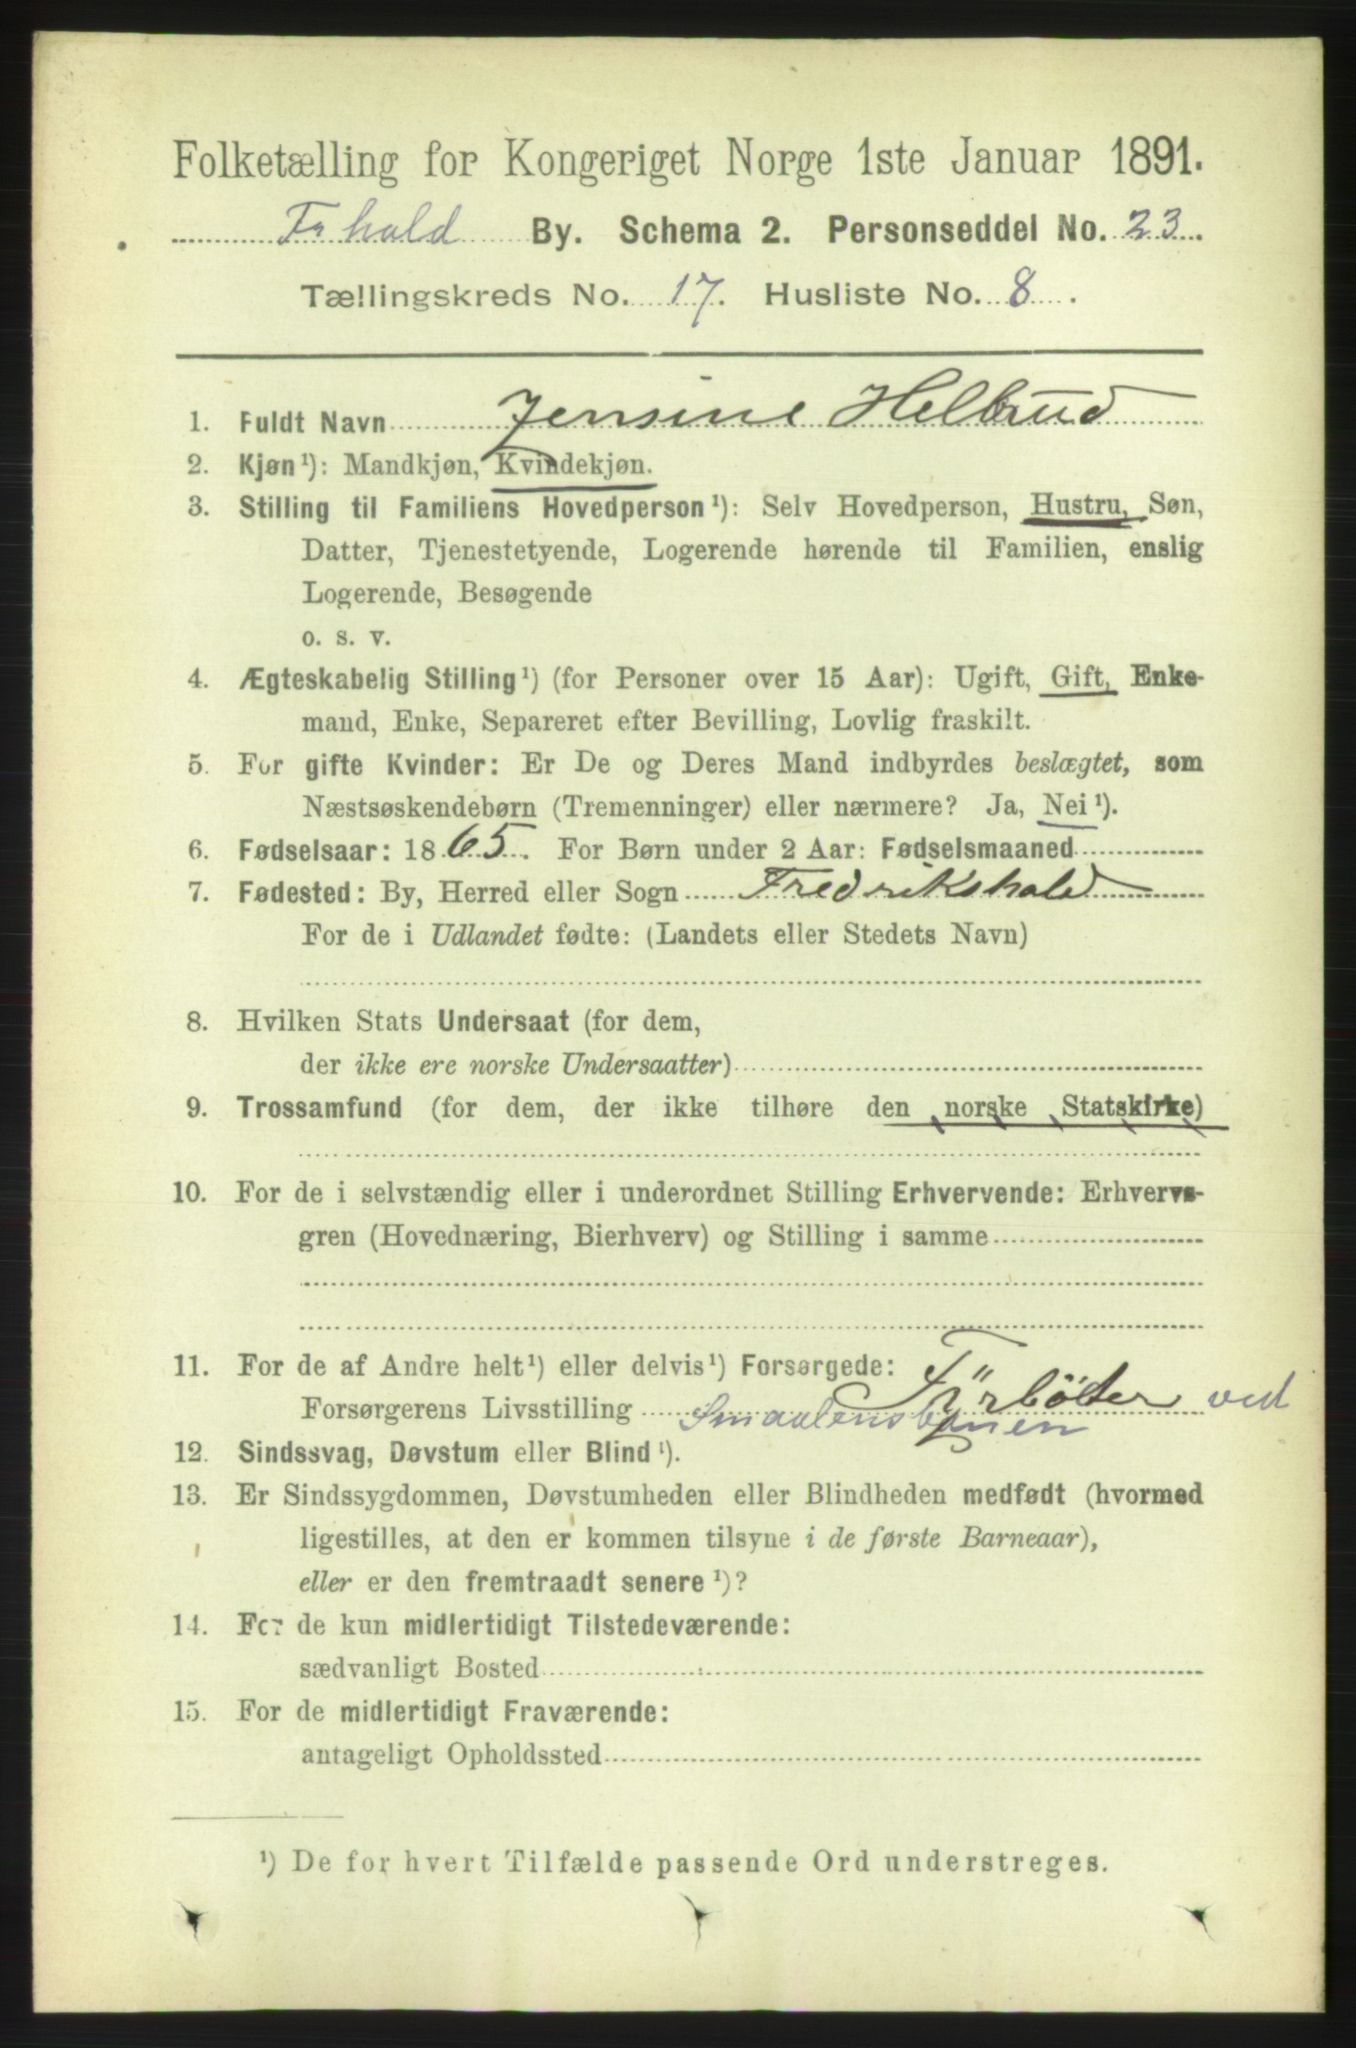 Folketælling for Kongeriget Norge 1ste Januar 1891.
Fr hald By. Schema 2. Personseddel No. 23.
Tællingskreds No. 17. Husliste No. 8.
1. Fuldt Navn Jensine Helbrud
2. Kjøn¹): Mandkjøn, Kvindekjøn.
3. Stilling til Familiens Hovedperson¹): Selv Hovedperson, Hustru, Søn,
Datter, Tjenestetyende, Logerende hørende til Familien, enslig
Logerende, Besøgende
o. s. v.
4. Ægteskabelig Stilling¹) (for Personer over 15 Aar): Ugift, Gift, Enke-
mand, Enke, Separeret efter Bevilling, Lovlig fraskilt.
5. For gifte Kvinder: Er De og Deres Mand indbyrdes beslægtet, som
Næstsøskendebørn (Tremenninger) eller nærmere? Ja, Nei¹).
6. Fødselsaar: 1865. For Børn under 2 Aar: Fødselsmaaned
7. Fødested: By, Herred eller Sogn Fredrikshald
For de i Udlandet fødte: (Landets eller Stedets Navn)
8. Hvilken Stats Undersaat (for dem,
der ikke ere norske Undersaatter)
9. Trossamfund (for dem, der ikke tilhøre den norske Statskirke)
10. For de i selvstændig eller i underordnet Stilling Erhvervende: Erhvervs-
gren (Hovednæring, Bierhverv) og Stilling i samme
11. For de af Andre helt¹) eller delvis¹) Forsørgede:
Forsørgerens Livsstilling Fyrbøter ved
Smaalensbanen
12. Sindssvag, Døvstum eller Blind¹).
13. Er Sindssygdommen, Døvstumheden eller Blindheden medfødt (hvormed
ligestilles, at den er kommen tilsyne i de første Barneaar),
eller er den fremtraadt senere¹)?
14. For de kun midlertidigt Tilstedeværende:
sædvanligt Bosted
15. For de midlertidigt Fraværende:
antageligt Opholdssted
¹) De for hvert Tilfælde passende Ord understreges.